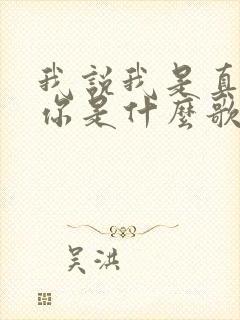 我說我是真
你是什麼歌
吴洪